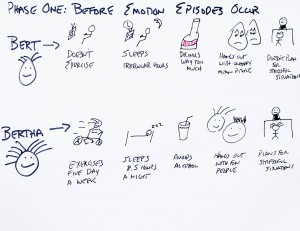 Phase One: Before Emotion Episodes Occur
Bert
Doesn't Exercise
Sleeps Irregular Hours
Drinks Way Too Much
Hangs out with
People
Doesn't Plan for Stressful Situations
Bertha
zzz
Exercises Five Day a Week
Sleeps 8.5 Hours a Night
Avoids Alcohol
Hangs out with Fun People
Plans for Stressful Situations